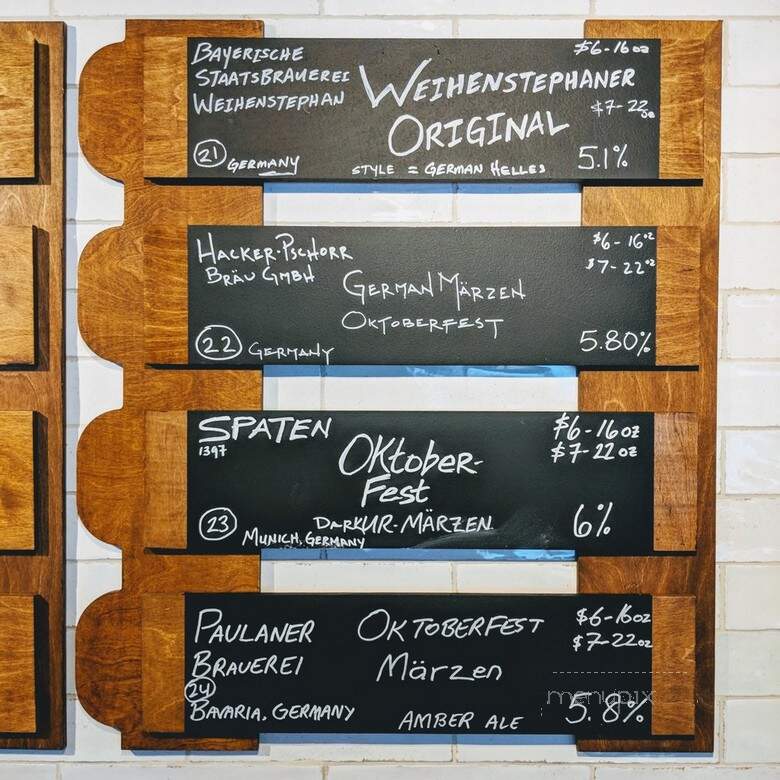 BAYERISCHE
STAATSBRAUEREI
WEIHENSTEPHAN
WEIHENSTEPHANER
ORIGINAL
$6-16oz
$7-22oz
21 GERMANY
STYLE = GERMAN HELLES
5.1%
HACKER-PSCHORR
BRÄU GMBH
GERMAN MÄRZEN
OKTOBERFEST
$6-16oz
$7-22oz
22 GERMANY
5.80%
SPATEN
1397
OKtober-
Fest
DarKUR-MÄRZEN
$6-16oz
$7-22oz
23 MUNICH, GERMANY
6%
PAULANER
BRAUEREI
24
BAVARIA, GERMANY
OKTOBERFEST
Märzen
AMBER ALE
$6-16oz
$7-22oz
menupix
5.8%